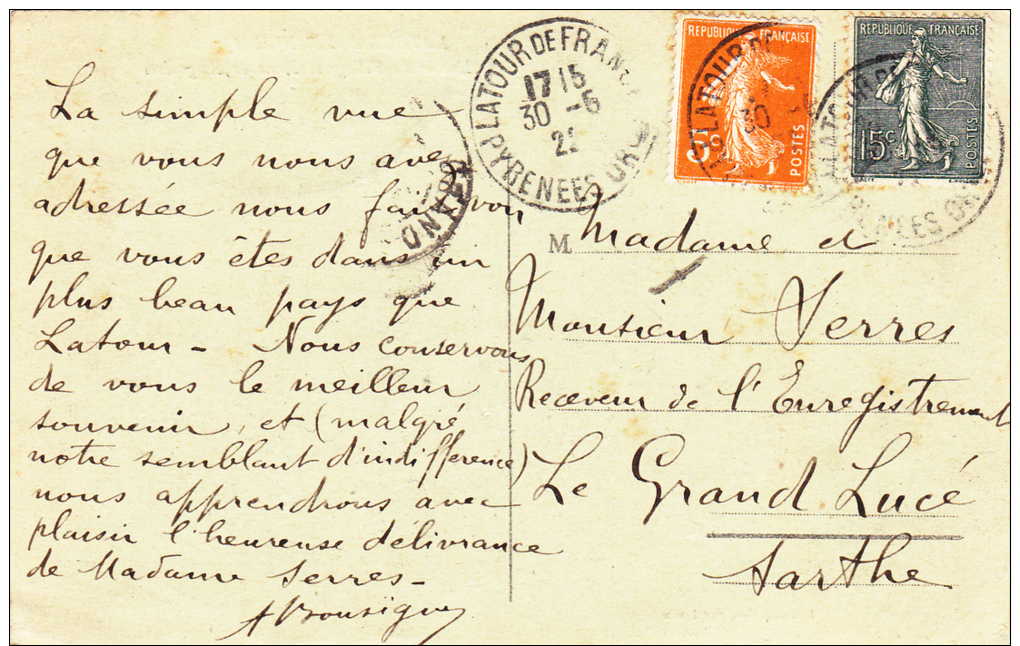 La simple vue
que vous nous avez
adressée nous fait voir
que vous êtes dans un
plus beau pays que
Latour - Nous conservons
de vous le meilleur
souvenir, et (malgré
notre semblant d'indifférence)
nous apprendrons avec
plaisir l'heureuse délivrance
de Madame Serres -
LATOUR DE FRANCE
17 15
30 - 6
22
PYRENEES OR
GRAND
REPUBLIQUE FRANÇAISE
5c
POSTES
REPUBLIQUE FRANÇAISE
15c
POSTES
M
Madame et
Monsieur Serres
Receveur de l'Enregistrement
Le Grand Lucé
Sarthe